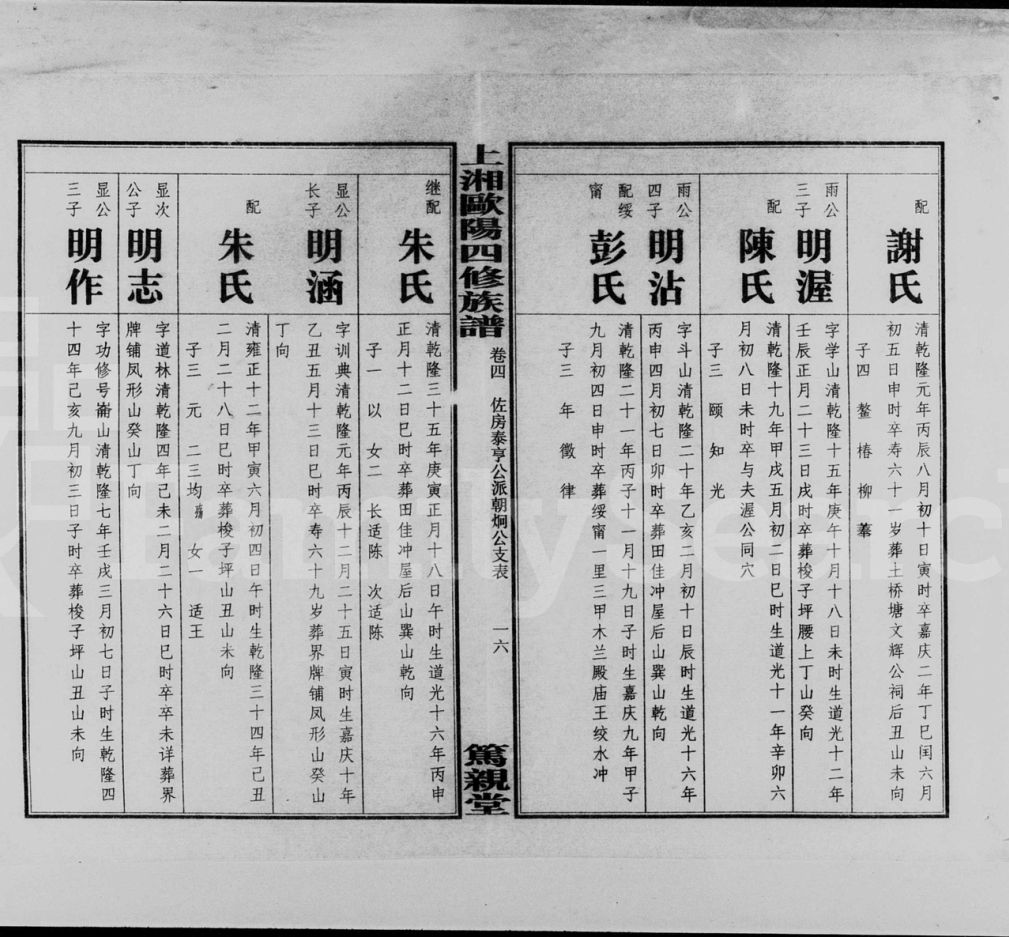 配
謝氏
清乾隆元年丙辰八月初十日寅时卒嘉庆二年丁巳闰六月
初五日申时卒寿六十一岁葬土桥塘文辉公祠后丑山未向
子四 鳌 椿 柳 搴
雨公
三子
明渥
字学山清乾隆十五年庚午十月十八日未时生道光十二年
壬辰正月二十三日戌时卒葬梭子坪腰上丁山癸向
配
陳氏
清乾隆十九年甲戌五月初二日巳时生道光十一年辛卯六
月初八日未时卒与夫渥公同穴
子三 颐 知 光
雨公
四子
明沾
字斗山清乾隆二十年乙亥二月初十日辰时生道光十六年
丙申四月初七日卯时卒葬田佳冲屋后山巽山乾向
配绥
甯
彭氏
清乾隆二十一年丙子十一月十九日子时生嘉庆九年甲子
九月初四日申时卒葬绥甯一里三甲木兰殿庙王绞水冲
子三 年 徵 律
上湘歐陽四修族譜
卷四
佐房泰亨公派朝炯公支表
一六
篤親堂
继配
朱氏
清乾隆三十五年庚寅正月十八日午时生道光十六年丙申
正月十二日巳时卒葬田佳冲屋后山巽山乾向
子一 以 女二 长适陈 次适陈
显公
长子
明涵
字训典清乾隆元年丙辰十二月二十五日寅时生嘉庆十年
乙丑五月十三日巳时卒寿六十九岁葬界牌铺凤形山癸山
丁向
配
朱氏
清雍正十二年甲寅六月初四日午时生乾隆三十四年己丑
二月二十八日巳时卒葬梭子坪山丑山未向
子三 元 二三均 女一 适王
显次
公子
明志
字道林清乾隆四年己未二月二十六日巳时卒卒未详葬界
牌铺凤形山癸山丁向
显公
三子
明作
字功修号嵛山清乾隆七年壬戌三月初七日子时生乾隆四
十四年己亥九月初三日子时卒葬梭子坪山丑山未向